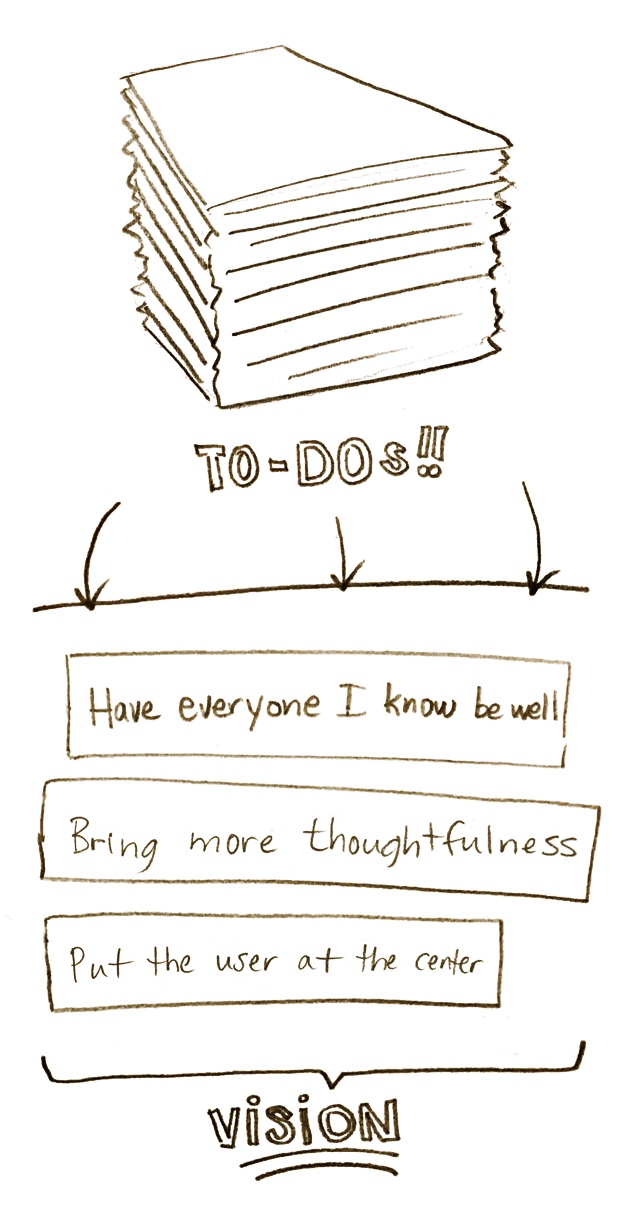 TO-DOs!!
Have everyone I know be well
Bring more thoughtfulness
Put the user at the center
ViSiON